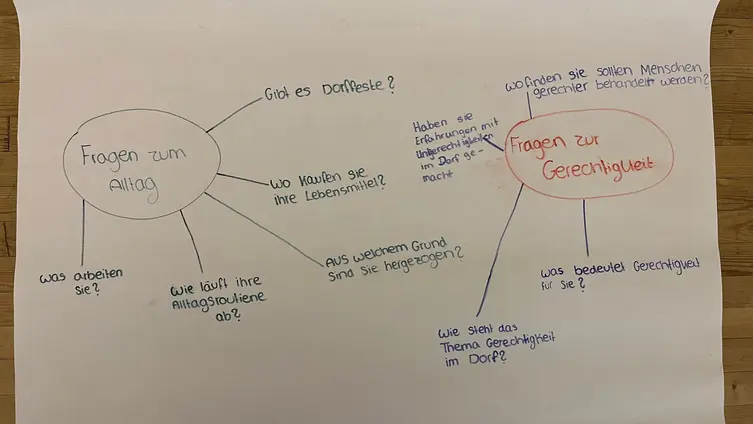 Fragen zum
Alltag
Gibt es Dorffeste?
Wo Kaufen sie
ihre Lebensmittel?
Aus welchem Grund
sind sie hergezogen?
Wie läuft ihre
Alltagsroutiene
ab?
was arbeiten
sie?
Fragen zur
Gerechtigkeit
wo finden sie sollten Menschen
gerechter behandelt werden?
Haben sie
Erfahrungen mit
Ungerechtigkeiten
im Dorf ge-
macht
was bedeutet Gerechtigkeit
für sie?
Wie steht das
Thema Gerechtigkeit
im Dorf?